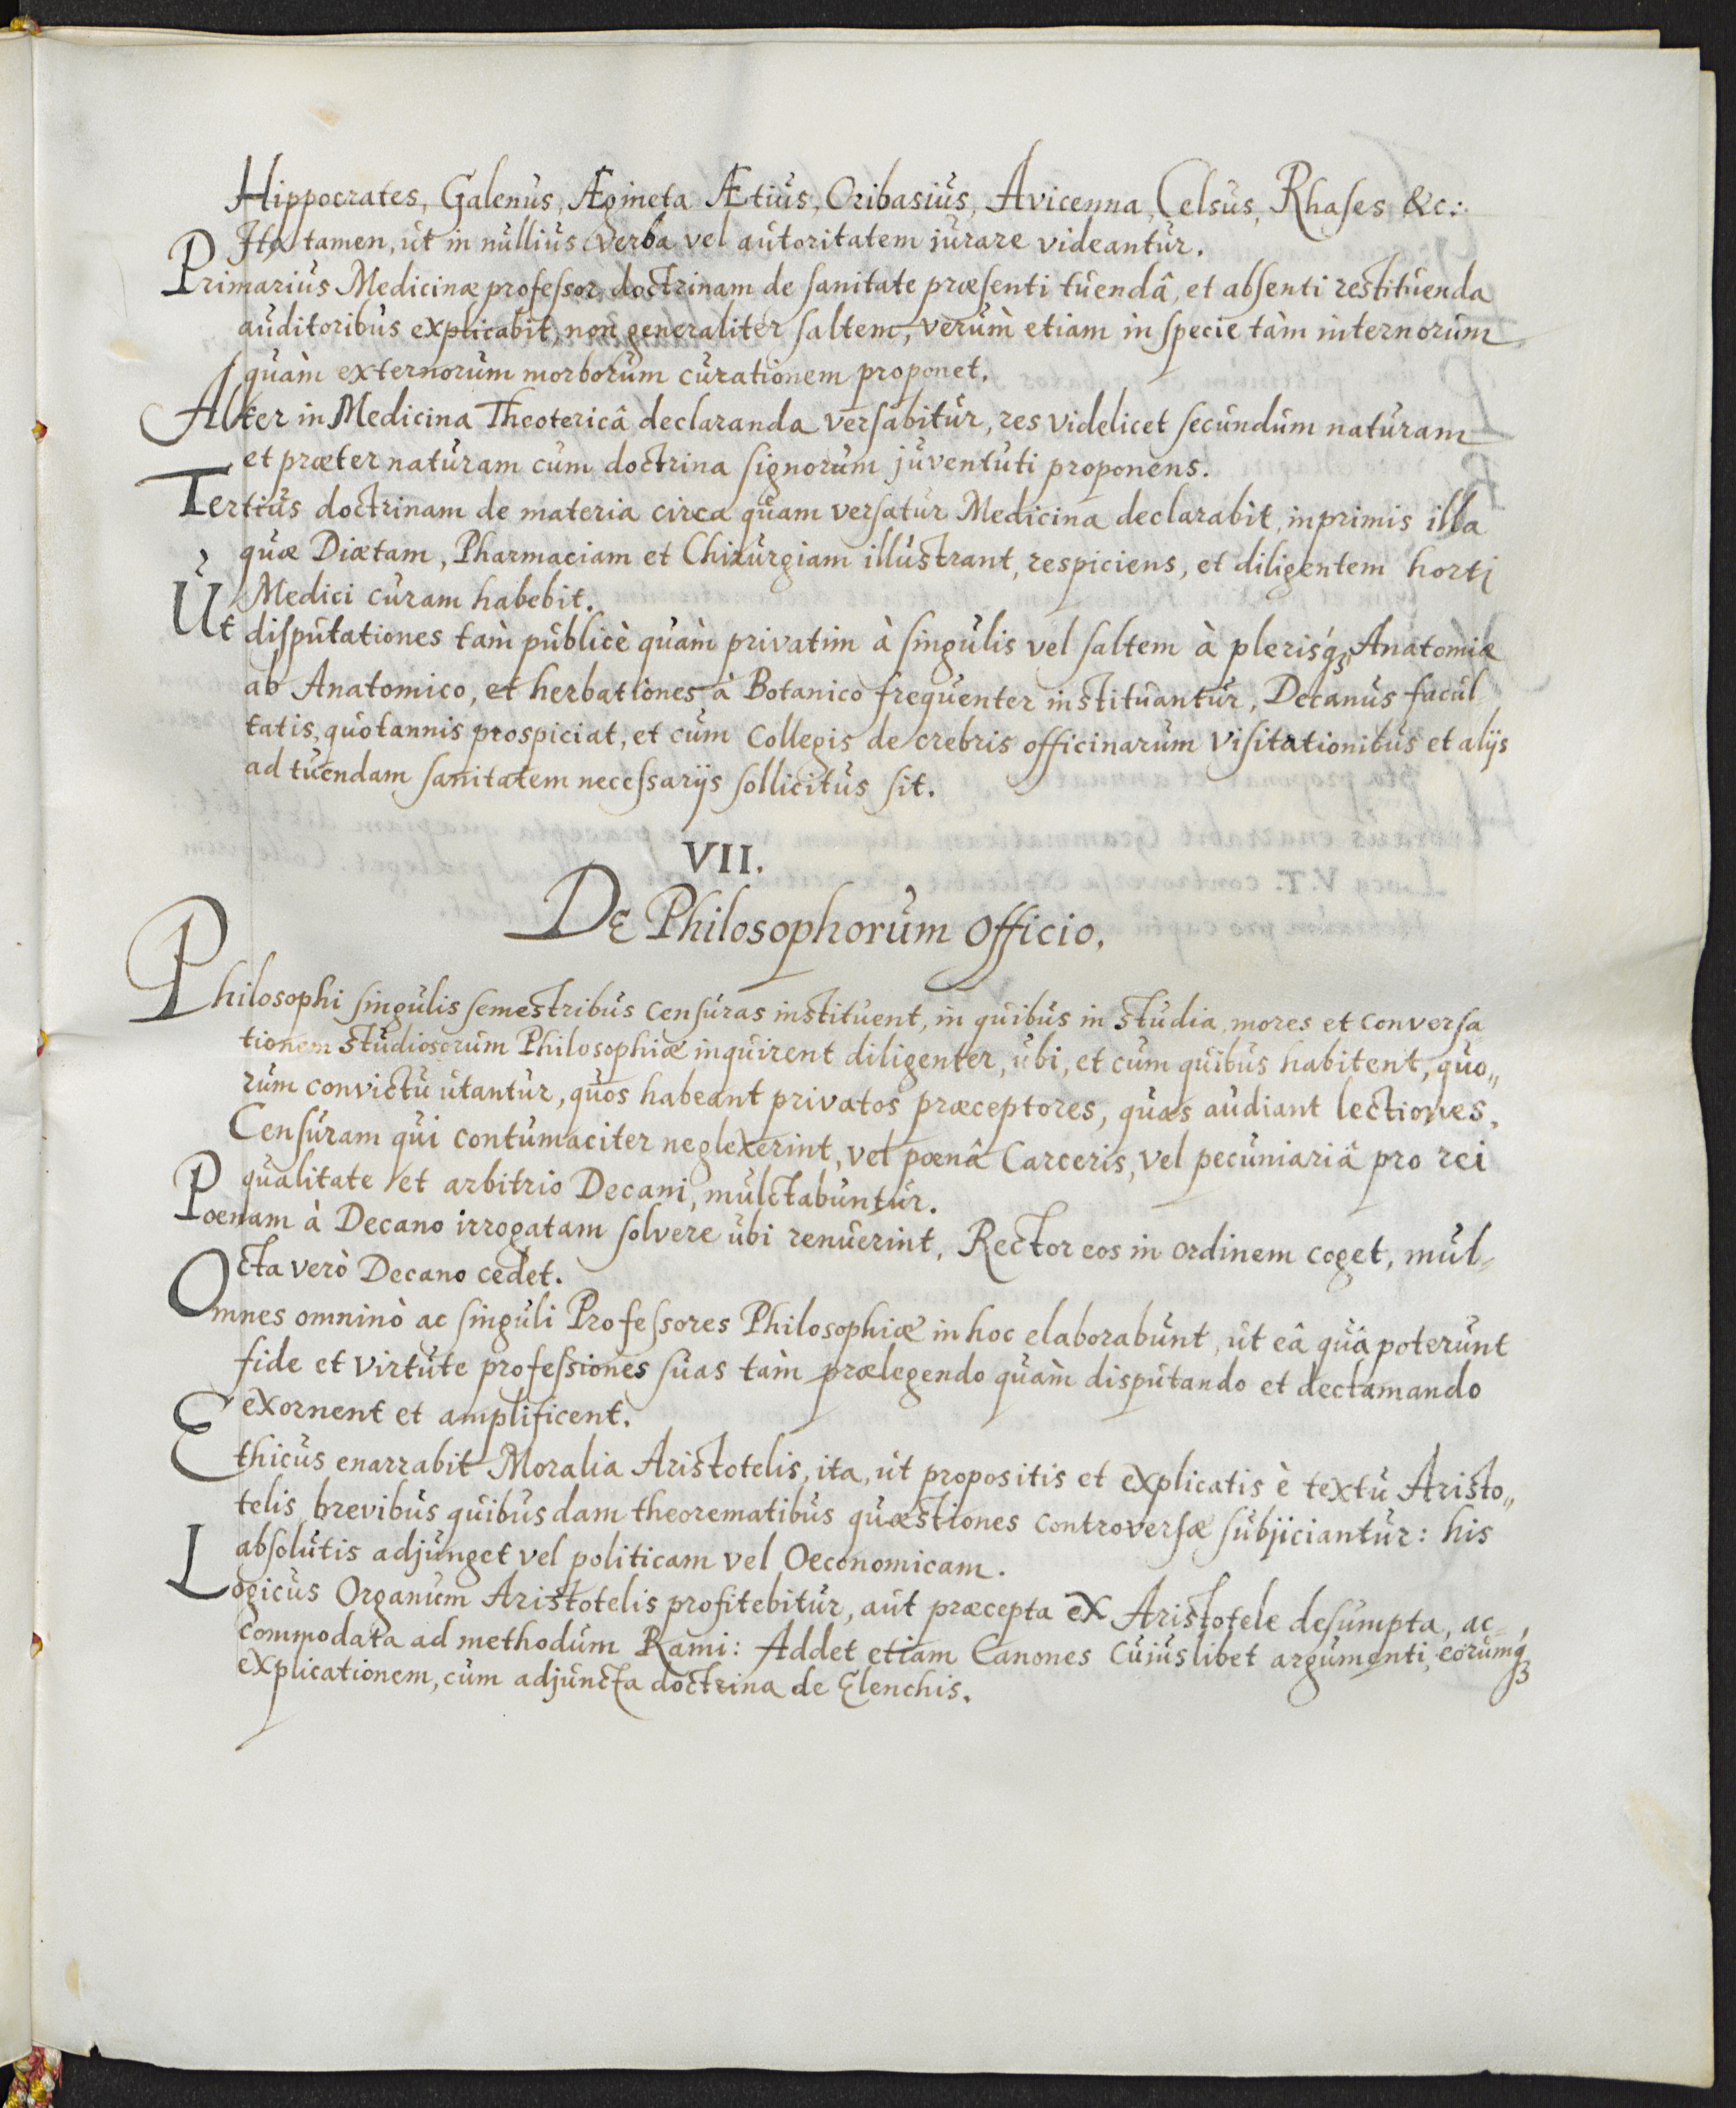 Hippocrates, Galenus, Ægineta Ætius, Oribasius, Avicenna, Celsus, Rhases &c:
Ita tamen, ut in nullius verba vel autoritatem jurare videantur.
Primarius Medicinæ professor, doctrinam de sanitate præsenti tuendâ, et absenti restituenda
auditoribus explicabit, non generaliter saltem, verùm etiam in specie tàm internorum
quàm externorum morborum curationem proponet.
Alter in Medicina Theotericâ declaranda versabitur, res videlicet secundùm naturam
et præter naturam cum doctrina signorum juventuti proponens.
Tertius doctrinam de materia circa quam versatur Medicina declarabit, inprimis illa
quæ Diætam, Pharmaciam et Chirurgiam illustrant, respiciens, et diligentem horti
Medici curam habebit.
Ut disputationes tam publicè quàm privatim à singulis vel saltem à plerisq́ꝫ, Anatomiæ
ab Anatomico, et herbationes à Botanico frequenter instituantur, Decanus facul
tatis, quotannis prospiciat, et cum Collegis de crebris officinarum visitationibus et alijs
ad tuendam sanitatem necessarijs sollicitus sit.
VII.
De Philosophorum officio.
Philosophi singulis semestribus censuras instituent, in quibus in studia, mores et conversa
tionem studiosorum Philosophiæ inquirent diligenter, ubi, et cum quibus habitent, quo„
rum convictu utantur, quos habeant privatos præceptores, quas audiant lectiones.
Censuram qui contumaciter neglexerint, vel pœnâ Carceris, vel pecuniariâ pro rei
qualitate et arbitrio Decani, mulctabuntur.
Poenam à Decano irrogatam solvere ubi renuerint, Rector eos in ordinem coget, mul-
cta verò Decano cedet.
Omnes omninò ac singuli Professores Philosophiæ in hoc elaborabunt, ut eâ quâ poterunt
fide et virtute professiones suas tàm prælegendo quàm disputando et declamando
exornent et amplificent.
Ethicus enarrabit Moralia Aristotelis, ita, ut propositis et explicatis è textu Aristo„
telis brevibus quibusdam theorematibus quæstiones controversæ subjiciantur: his
absolutis adjunget vel politicam vel Oeconomicam.
Logicus Organum Aristotelis profitebitur, aut præcepta ex Aristotele desumpta, ac-
commodata ad methodum Rami: Addet etiam Canones cujuslibet argumenti, eorumq́ꝫ
explicationem, cum adjuncta doctrina de Elenchis.